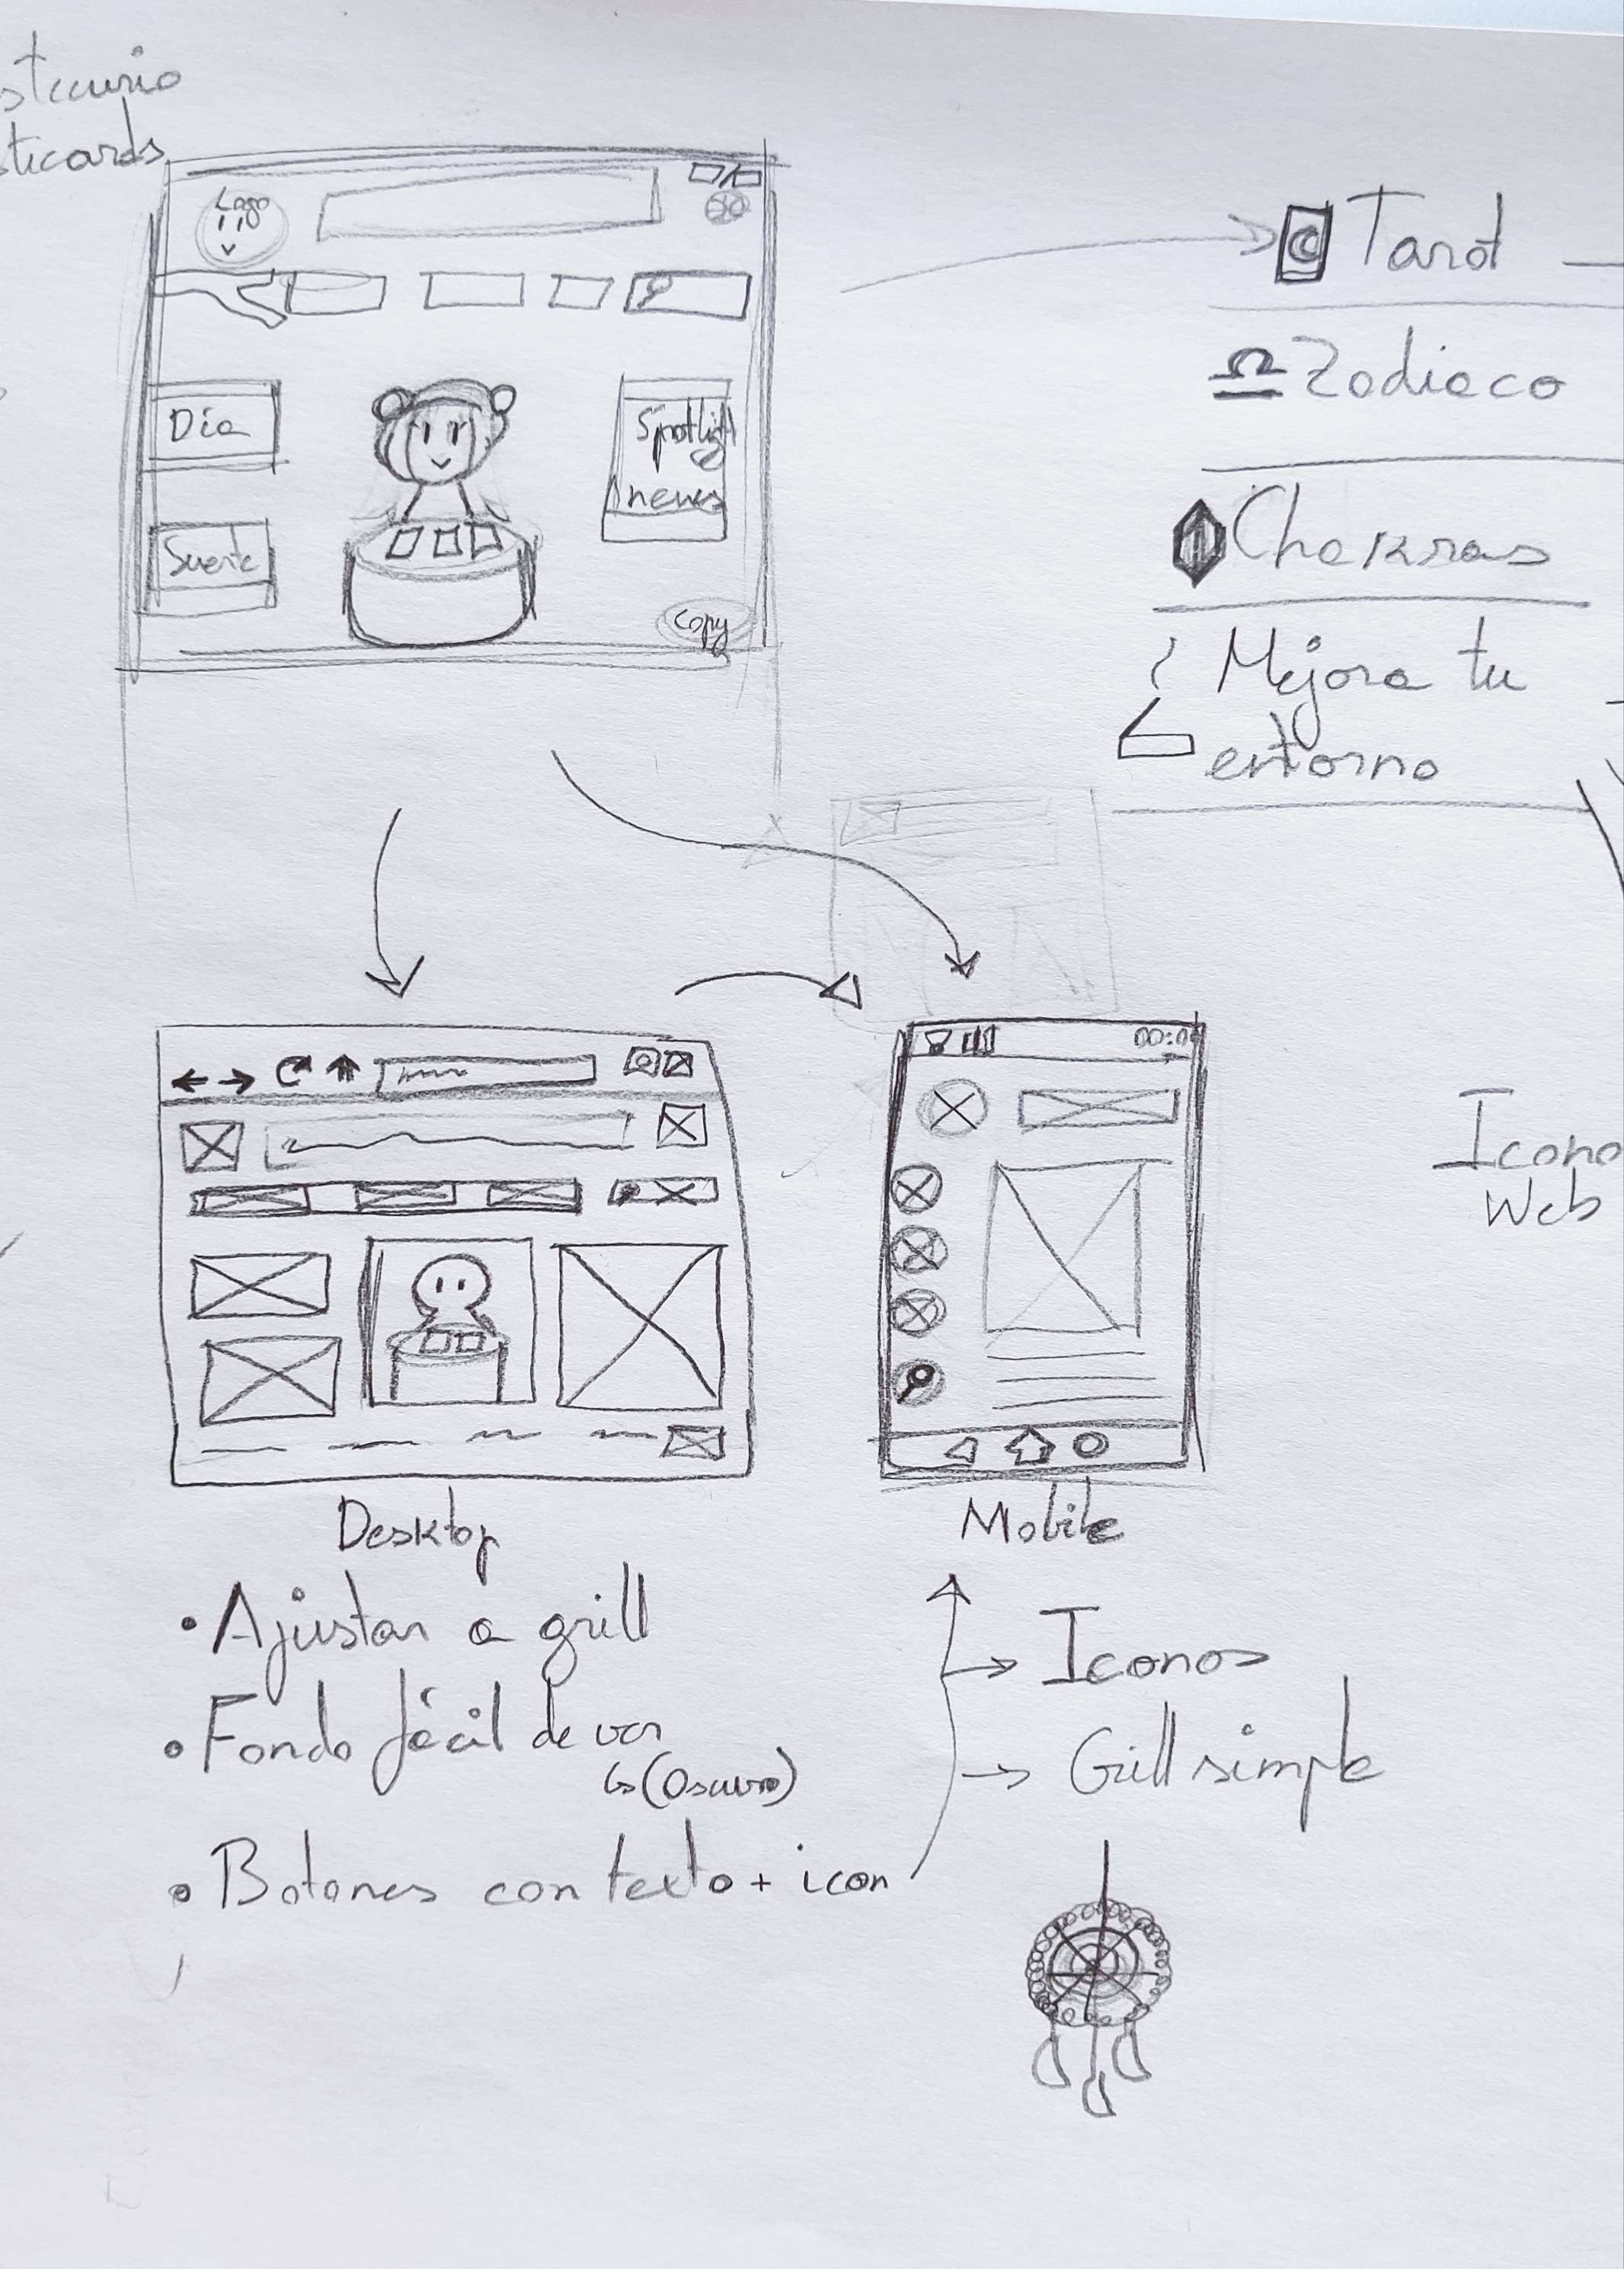 ticards
Logo
Día
Suerte
Spotlight
news
Copy
Tarot
Zodiaco
Chakras
Mejora tu
entorno
00:0
Icono
Web
Desktop
Mobile
• Ajustar a grill
• Fondo fácil de ver
↳ (Oscuro)
• Botones con texto + icon
→ Iconos
→ Grill simple